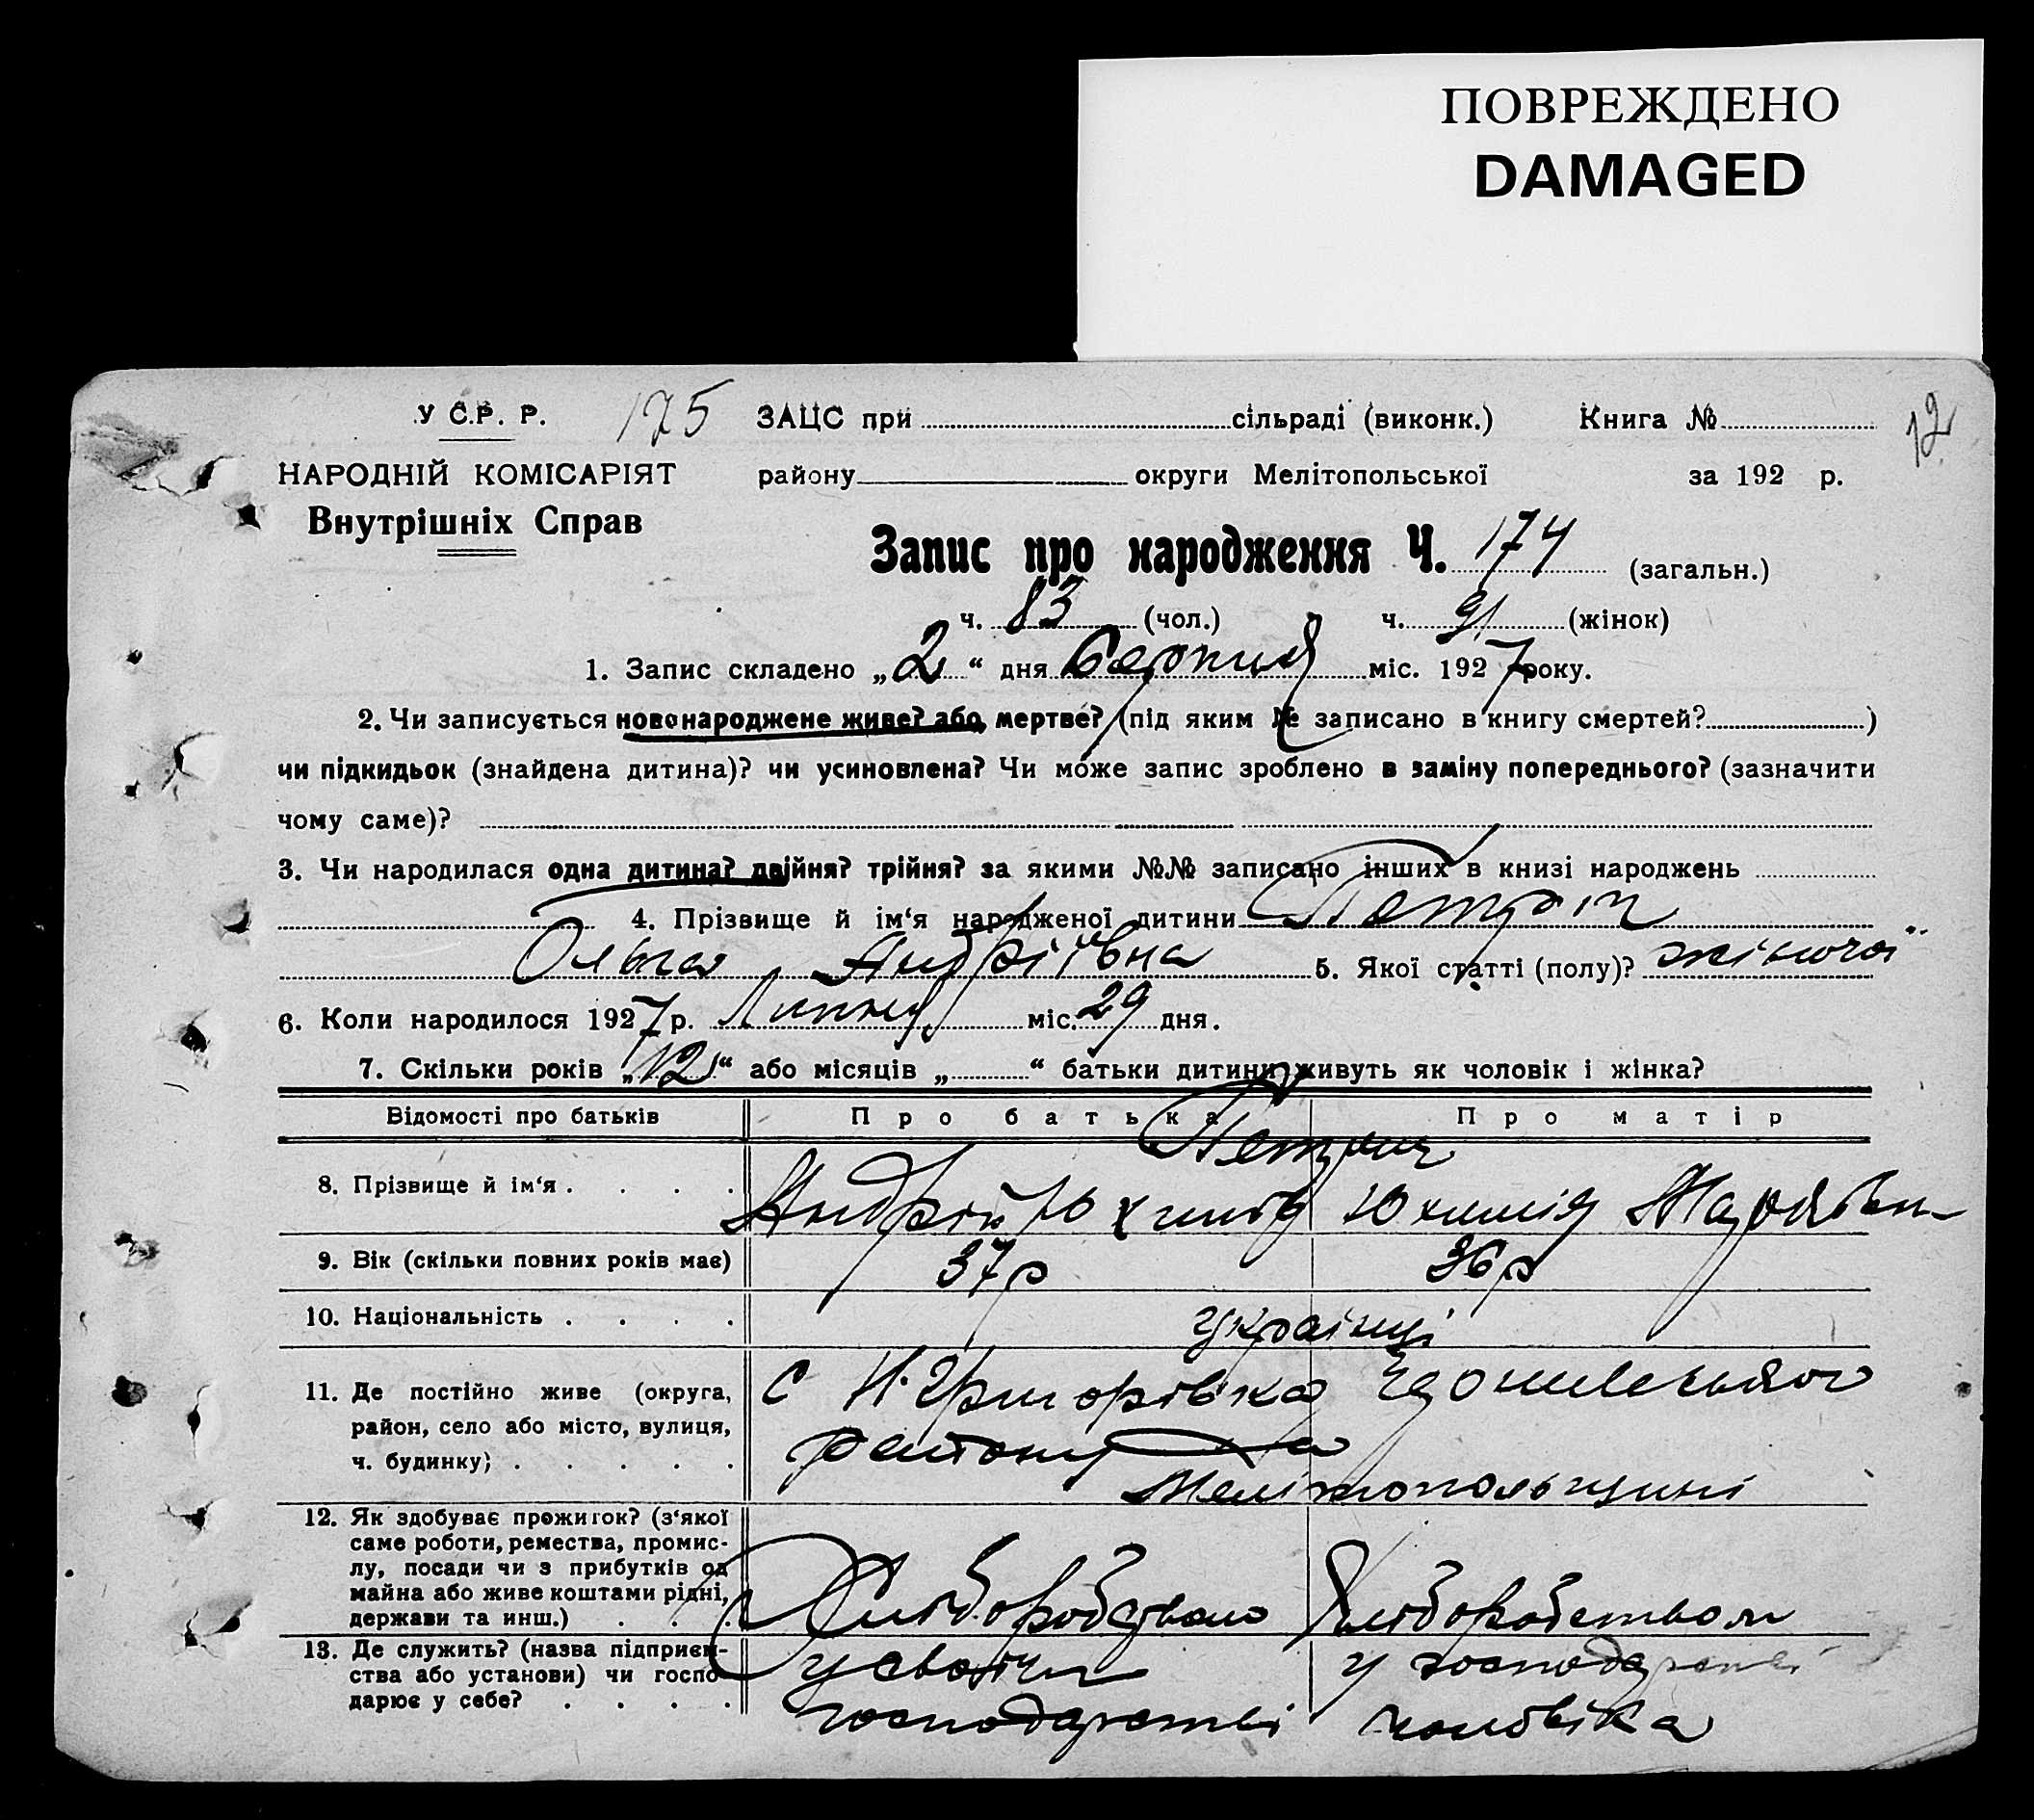 ПОВРЕЖДЕНО
DAMAGED
У С.Р. Р. 175 ЗАЦС при сільраді (виконк.) Книга № 12
НАРОДНІЙ КОМІСАРІЯТ району округи Мелітопольської за 192 р.
Внутрішніх Справ
Запис про народження Ч. 174 (загальн.)
ч. 83 (чол.) ч. 91 (жінок)
1. Запис складено „2“ дня Серпня міс. 1927 року.
2. Чи записується новонароджене живе? або мертве? (під яким № записано в книгу смертей? )
чи підкидьок (знайдена дитина)? чи усиновлена? Чи може запис зроблено в заміну попереднього? (зазначити
чому саме)?
3. Чи народилася одна дитина? двійня? трійня? за якими №№ записано інших в книзі народжень
4. Прізвище й ім‘я народженої дитини
Ольга Андріївна 5. Якої статті (полу)? жіночої
6. Коли народилося 1927 р. Липня міс. 29 дня.
7. Скільки років „12“ або місяців „ “ батьки дитини живуть як чоловік і жінка?
Відомості про батьків Про батька Про матір
8. Прізвище й ім‘я . . . . Андрій Юхимів Юхимія
9. Вік (скільки повних років має) 37 р 36 р
10. Національність . . . . українці
11. Де постійно живе (округа, с Н. Григорівка
район, село або місто, вулиця, району
ч. будинку; . . . . . Мелітопольщині
12. Як здобуває прожиток? (з‘якої
саме роботи, ремества, промис-
лу, посади чи з прибутків од
майна або живе коштами рідні, Хліборобством Хліборобством
держави та инш.) . . .
13. Де служить? (назва підприєм-
ства або установи) чи госпо- у своїм у господарстві
дарює у себе? . . . . господарстві чоловіка